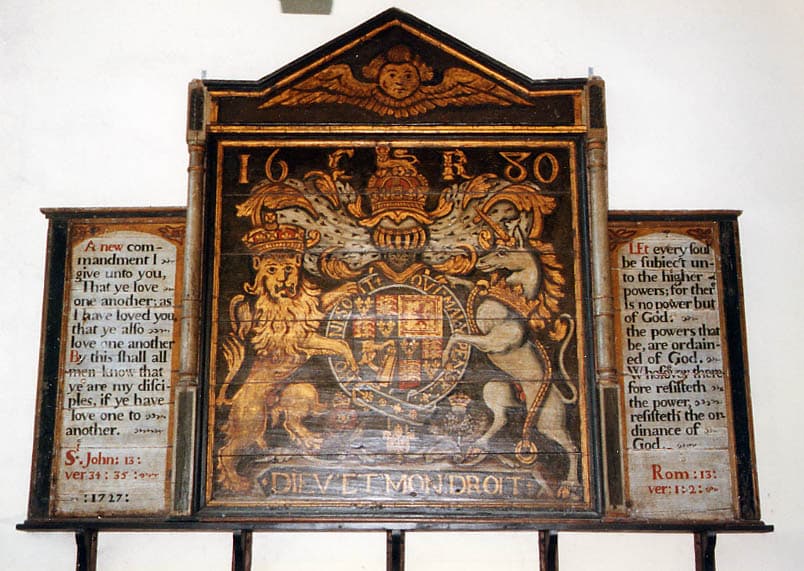 16 C R 80
HONI SOIT QUI MAL
DIEV ET MON DROIT
A new com-
mandment I
give unto you,
That ye love
one another; as
I have loved you,
that ye also
love one another
By this shall all
men know that
ye are my disci-
ples, if ye have
love one to
another.
St. John: 13:
ver: 34: 35:
: 1727:
LEt every soul
be subiect un-
to the higher
powers; for ther
is no power but
of God.
the powers that
be, are ordain-
ed of God.
Whosoever there
fore resisteth
the power,
resisteth the or-
dinance of
God.
Rom: 13:
ver: 1: 2: